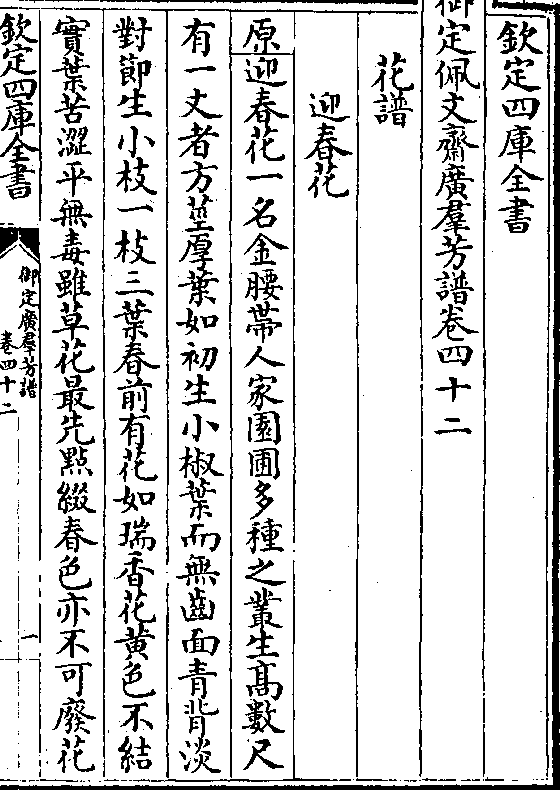 欽定四庫全書
御定佩文齋廣羣芳譜卷四十二
花譜
迎春花
原迎春花一名金腰帶人家園圃多種之叢生高數尺
有一丈者方莖厚葉如初生小椒葉而無齒面青背淡
對節生小枝一枝三葉春前有花如瑞香花黃色不結
實葉苦澀平無毒雖草花最先點綴春色亦不可廢花
欽定四庫全書
御定廣羣芳譜
卷四十二
一